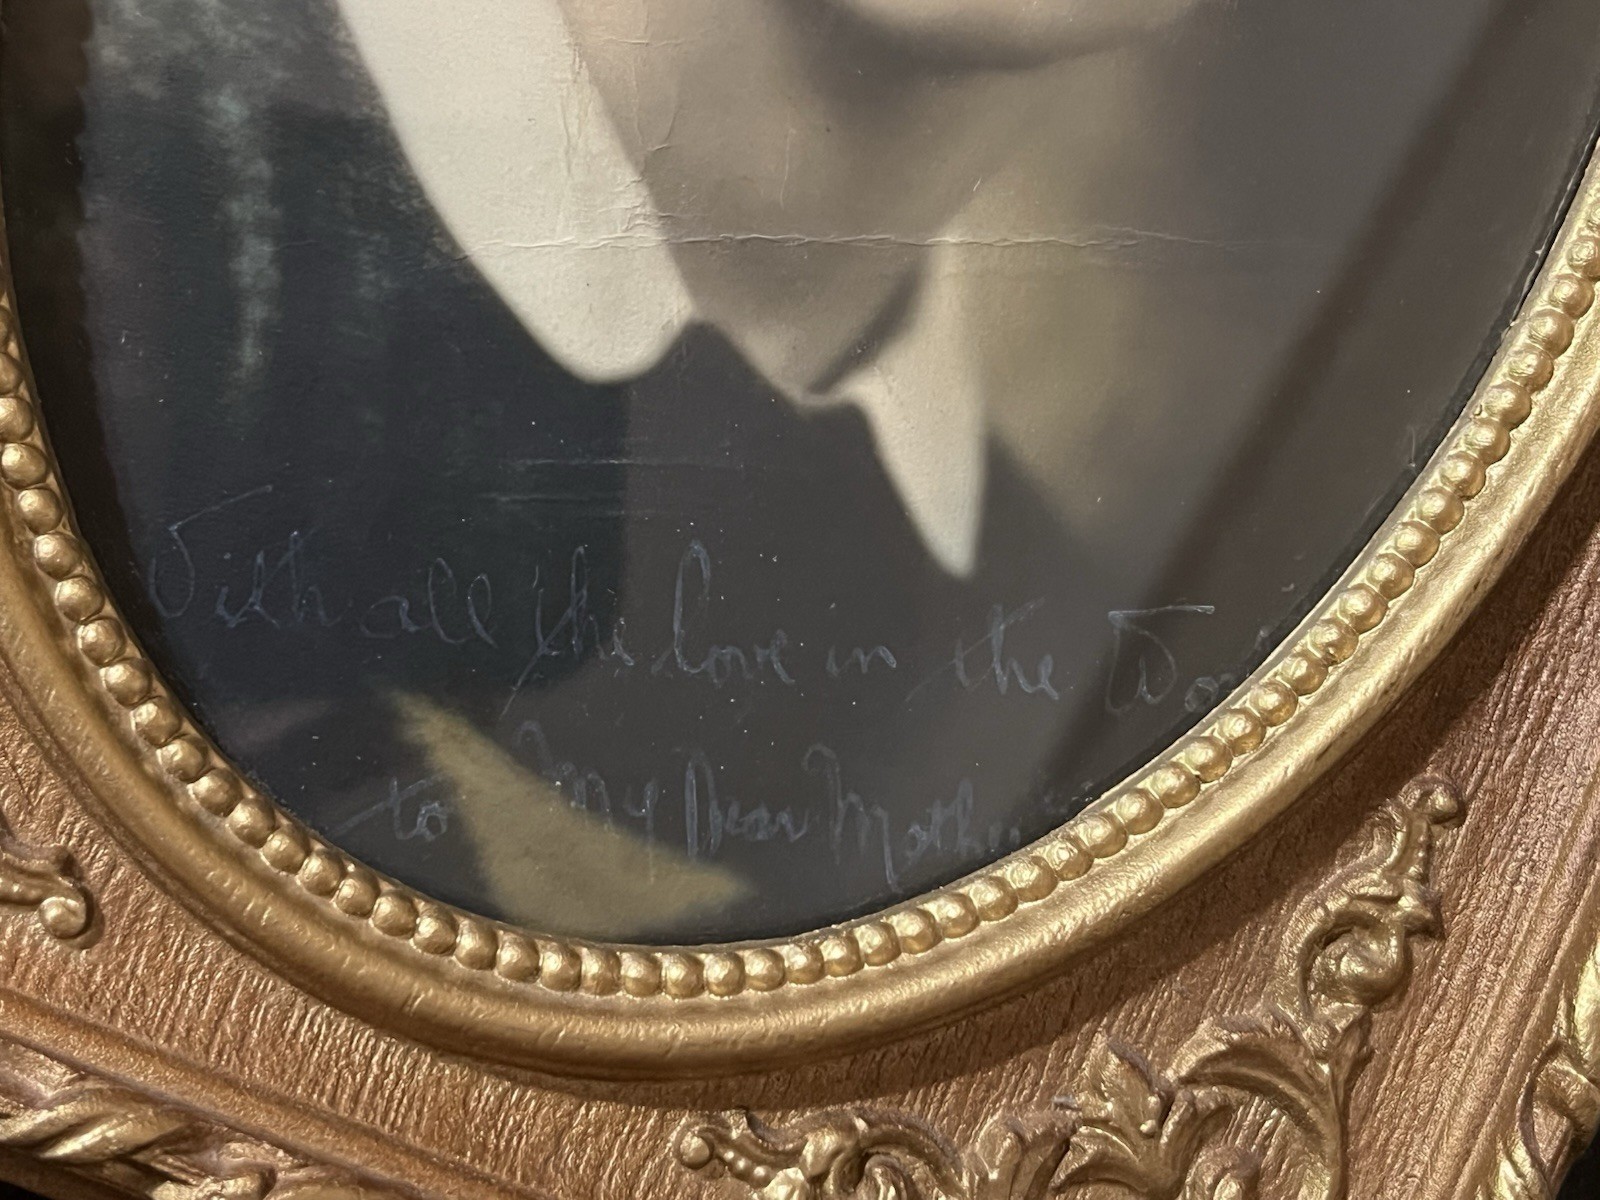 With all the love in the Wor
to My Dear Mother